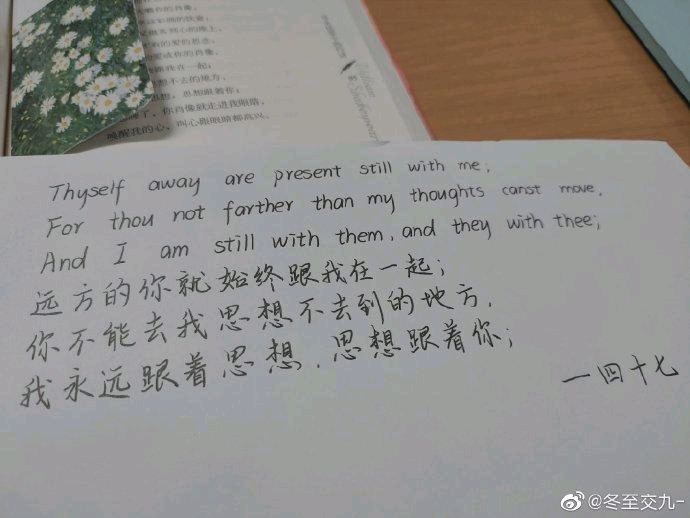 你肖像就走进我眼睛,
唤醒我的心,叫心跟眼睛都高兴。
Shakespeare
Thyself away are present still with me;
For thou not farther than my thoughts canst move,
And I am still with them, and they with thee;
远方的你就始终跟我在一起;
你不能去我思想不去到的地方,
我永远跟着思想,思想跟着你;
一四十七
@冬至交九-